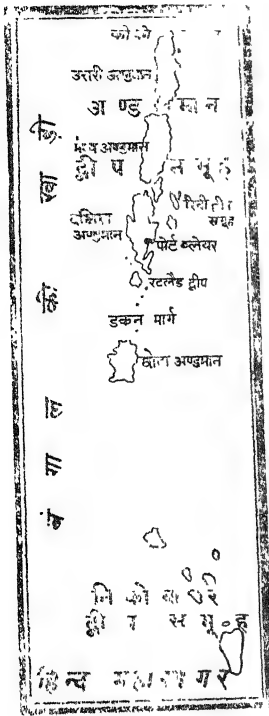 को को
उत्तरी अण्डमान
अ ण्ड मा न
मध्य अण्डमान
द्वी प स मू ह
रिची द्वीप
समूह
दक्षिण
अण्डमान
पोर्ट ब्लेयर
रटलैंड द्वीप
डंकन मार्ग
छोटा अण्डमान
बं गा ल की खा ड़ी
नि को बा र
द्वी प स मू ह
हिन्द महासागर